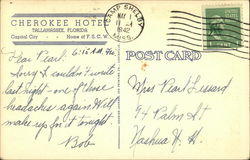 CHEROKEE HOTEL
TALLAHASSEE, FLORIDA
Capital City Home of F.S.C.W.
CAMP SHELBY
MAY
11 AM
1942
MISS.
POST CARD
6:15 A.M.
Dear Pearl:
Sorry I couldn't write
last night - one of those
headaches again. Will
make up for it tonight
Bob
Mrs Pearl Lessard
94 Palm St
Nashua N. H.